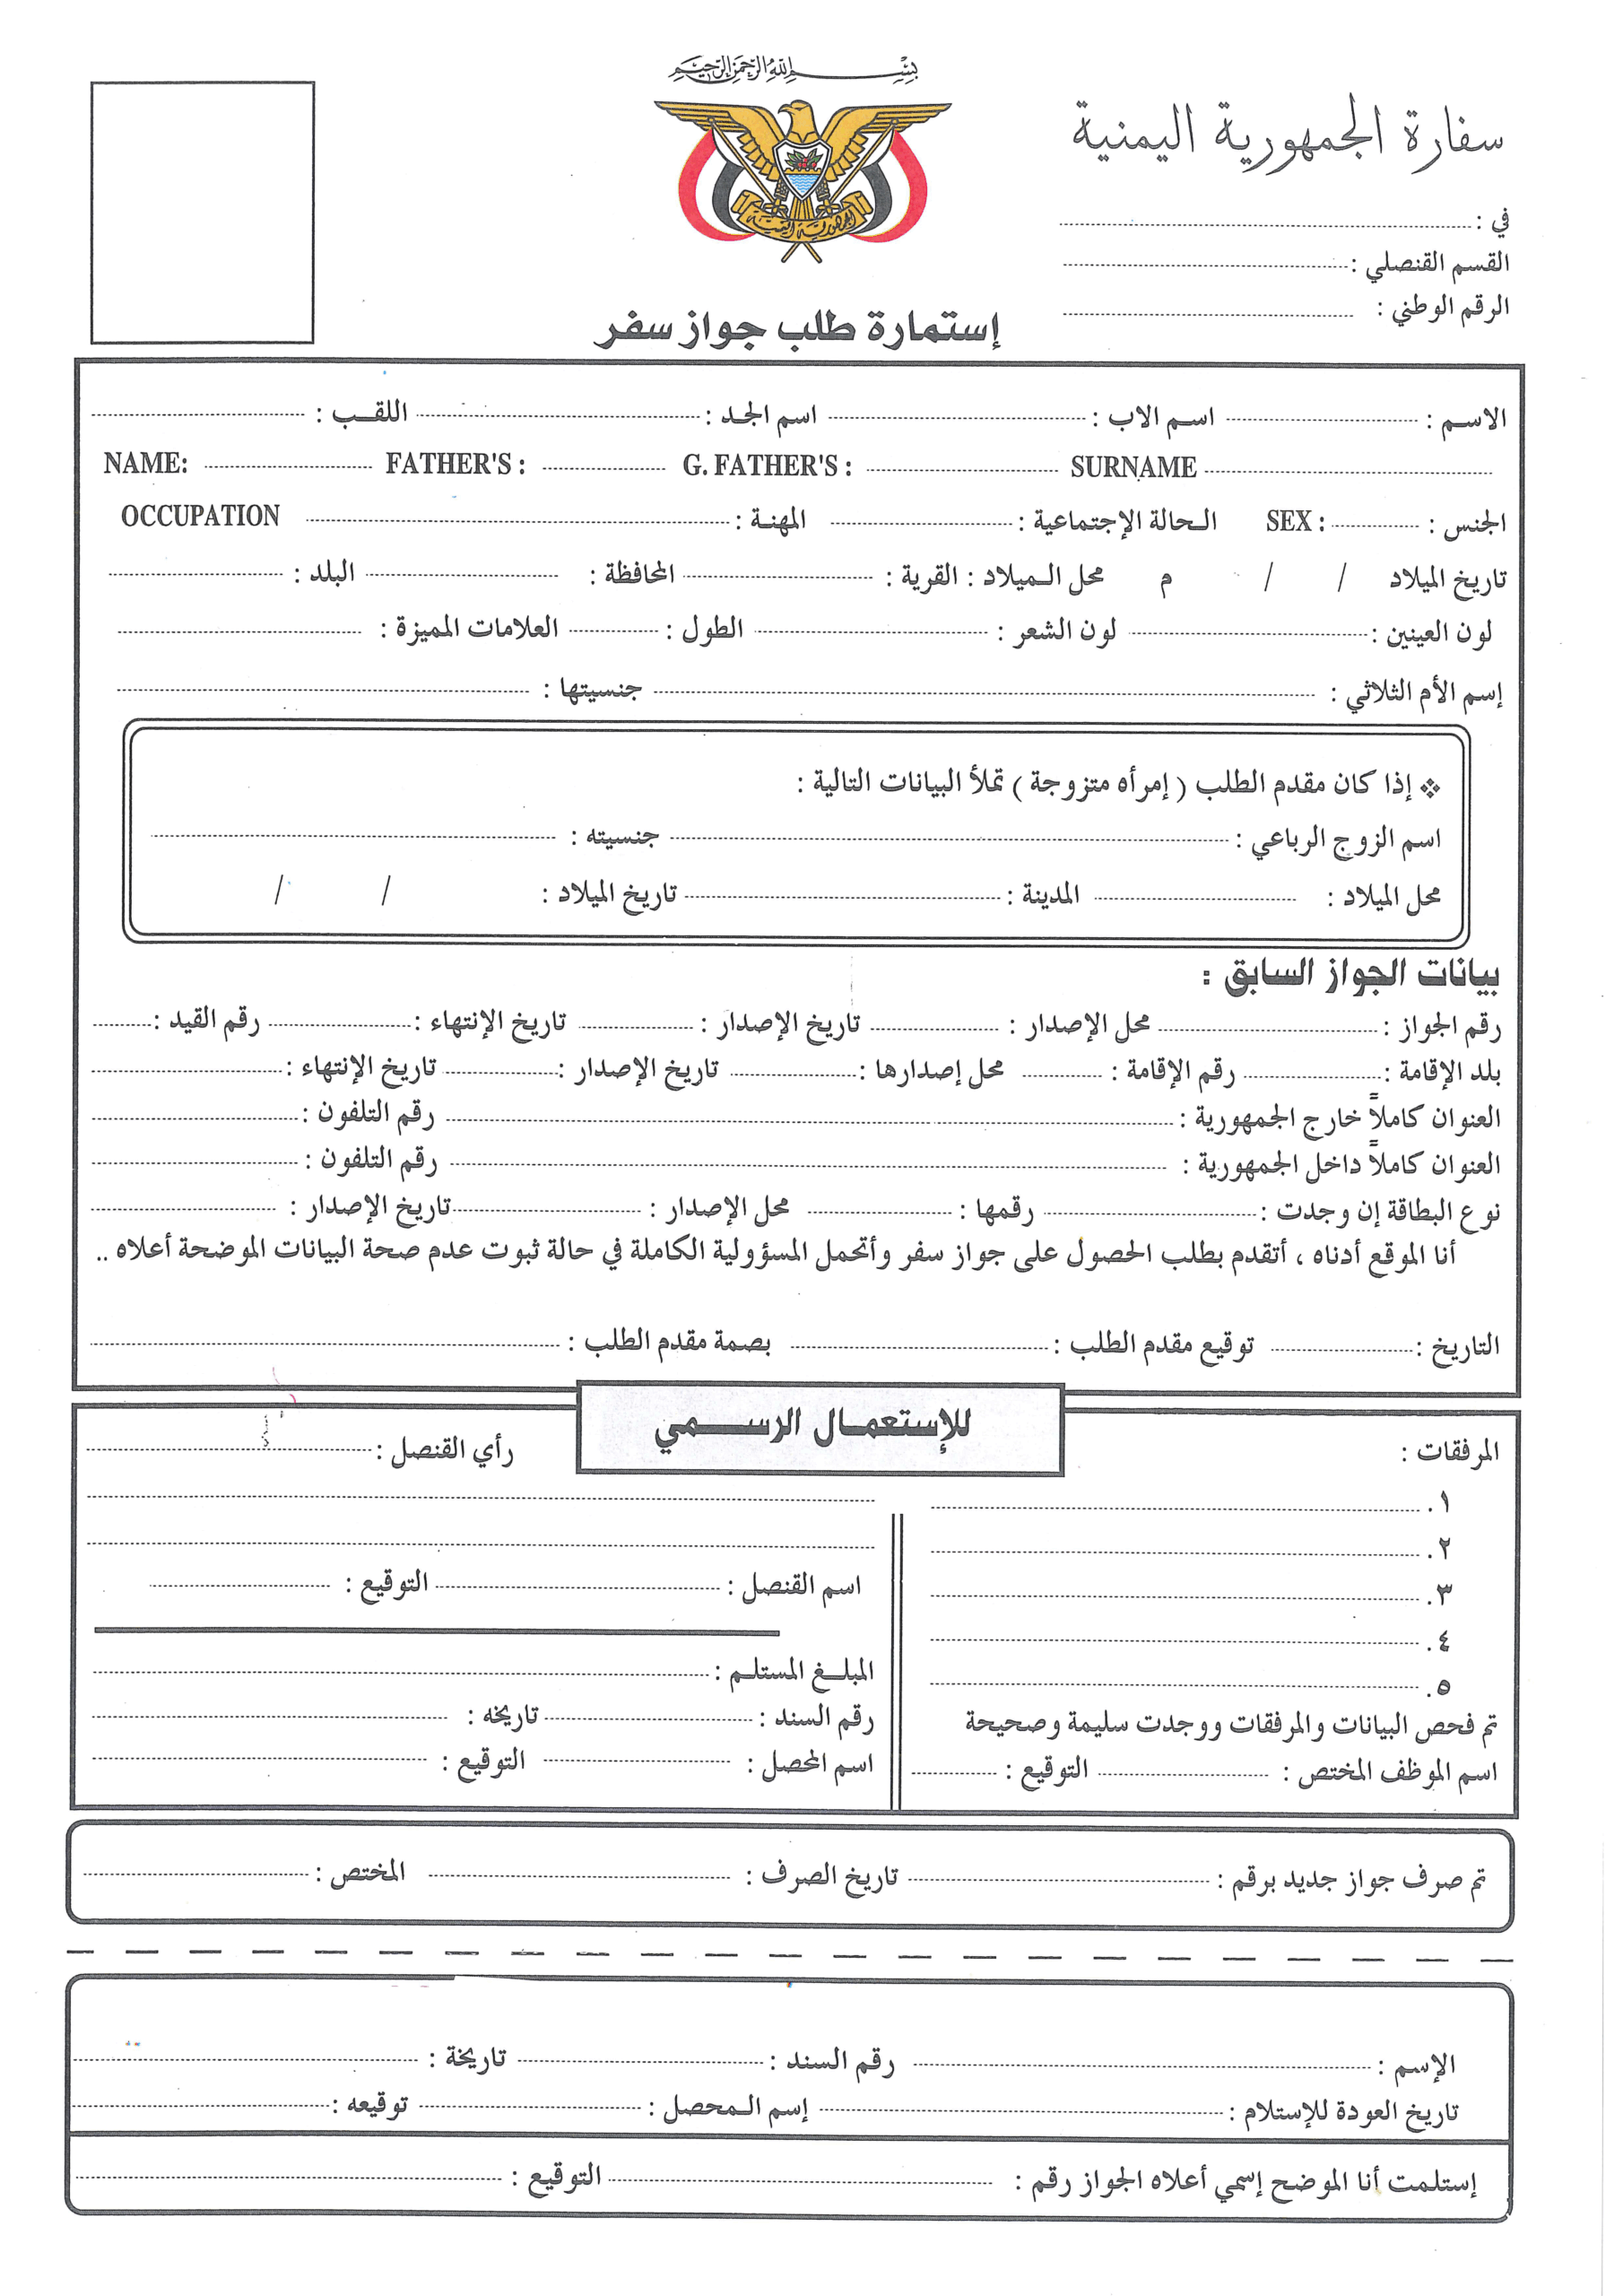 بسم الله الرحمن الرحيم
سفارة الجمهورية اليمنية
الجمهورية اليمنية
في :
القسم القنصلي :
الرقم الوطني :
إستمارة طلب جواز سفر
الاسم : اسم الاب : اسم الجد : اللقب :
NAME: FATHER'S : G. FATHER'S : SURNAME
الجنس : SEX : الحالة الإجتماعية : المهنة : OCCUPATION
تاريخ الميلاد / / م محل الميلاد : القرية : المحافظة : البلد :
لون العينين : لون الشعر : الطول : العلامات المميزة :
إسم الأم الثلاثي : جنسيتها :
❖ إذا كان مقدم الطلب ( إمرأه متزوجة ) تملأ البيانات التالية :
اسم الزوج الرباعي : جنسيته :
محل الميلاد : المدينة : تاريخ الميلاد : / /
بيانات الجواز السابق :
رقم الجواز : محل الإصدار : تاريخ الإصدار : تاريخ الإنتهاء : رقم القيد :
بلد الإقامة : رقم الإقامة : محل إصدارها : تاريخ الإصدار : تاريخ الإنتهاء :
العنوان كاملاً خارج الجمهورية : رقم التلفون :
العنوان كاملاً داخل الجمهورية : رقم التلفون :
نوع البطاقة إن وجدت : رقمها : محل الإصدار : تاريخ الإصدار :
أنا الموقع أدناه ، أتقدم بطلب الحصول على جواز سفر وأتحمل المسؤولية الكاملة في حالة ثبوت عدم صحة البيانات الموضحة أعلاه ..
التاريخ : توقيع مقدم الطلب : بصمة مقدم الطلب :
للإستعمال الرسمي
المرفقات :
١.
٢.
٣.
٤.
٥.
تم فحص البيانات والمرفقات ووجدت سليمة وصحيحة
اسم الموظف المختص : التوقيع :
رأي القنصل :
اسم القنصل : التوقيع :
المبلغ المستلم :
رقم السند : تاريخه :
اسم المحصل : التوقيع :
تم صرف جواز جديد برقم : تاريخ الصرف : المختص :
الإسم : رقم السند : تاريخة :
تاريخ العودة للإستلام : إسم المحصل : توقيعه :
إستلمت أنا الموضح إسمي أعلاه الجواز رقم : التوقيع :